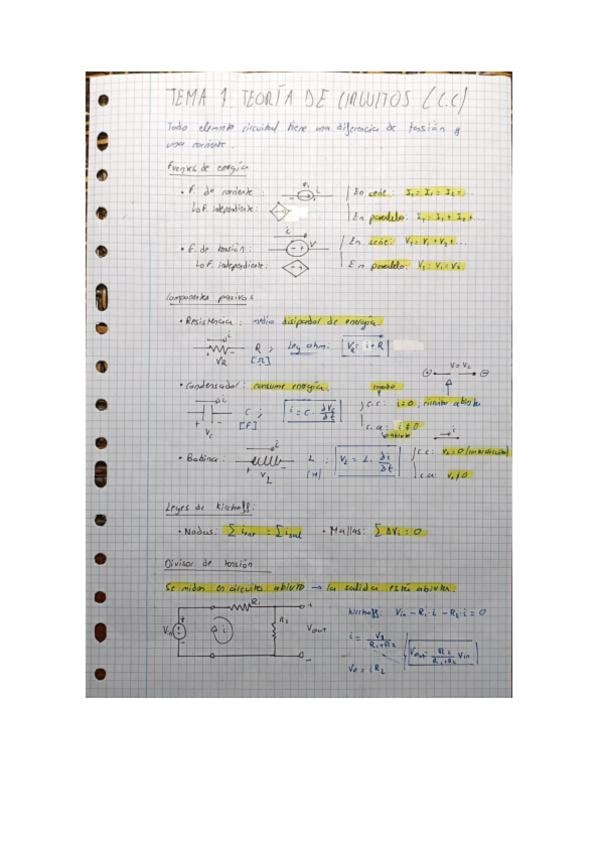 TEMA 1 TEORÍA DE CIRCUITOS (C.C)
Todo elemento circuital tiene una diferencia de tensión y
una corriente.
Fuentes de energía
• F. de corriente: i
En serie: I₁ = I₁ = I₂ = ...
Lo F. independiente:
En paralelo: I₁ = I₁ + I₂ + ...
• F. de tensión: i V
En serie: V₁ = V₁ + V₂ + ...
Lo F. independiente:
En paralelo: V₁ = V₁ = V₂
Componentes pasivos:
• Resistencia: medio disipador de energía.
i R ; Ley ohm. V_R = i * R
V_R [Ω]
• Condensador: consume energía.
V = V_c
i C ; i = C · ∂V_c/∂t
c.c: i = 0; circuito abierto
+ V_c - [F]
c.a: i ≠ 0
• Bobina: i L : V_L = L · ∂i/∂t
c.c: V_L = 0
V_L [H]
c.a: V_L ≠ 0
Leyes de Kirchoff:
• Nodos: ∑ i_ent = ∑ i_sal • Mallas: ∑ ΔV_i = 0
Divisor de tensión
Se miden en circuito abierto → la salida está abierta.
R₁ + Kirchoff: V_in - R₁·i - R₂·i = 0
V_in i R₂ V_out
i = V_g/R₁+R₂ V_out = R₂/R₁+R₂ V_in
V_o = i R₂